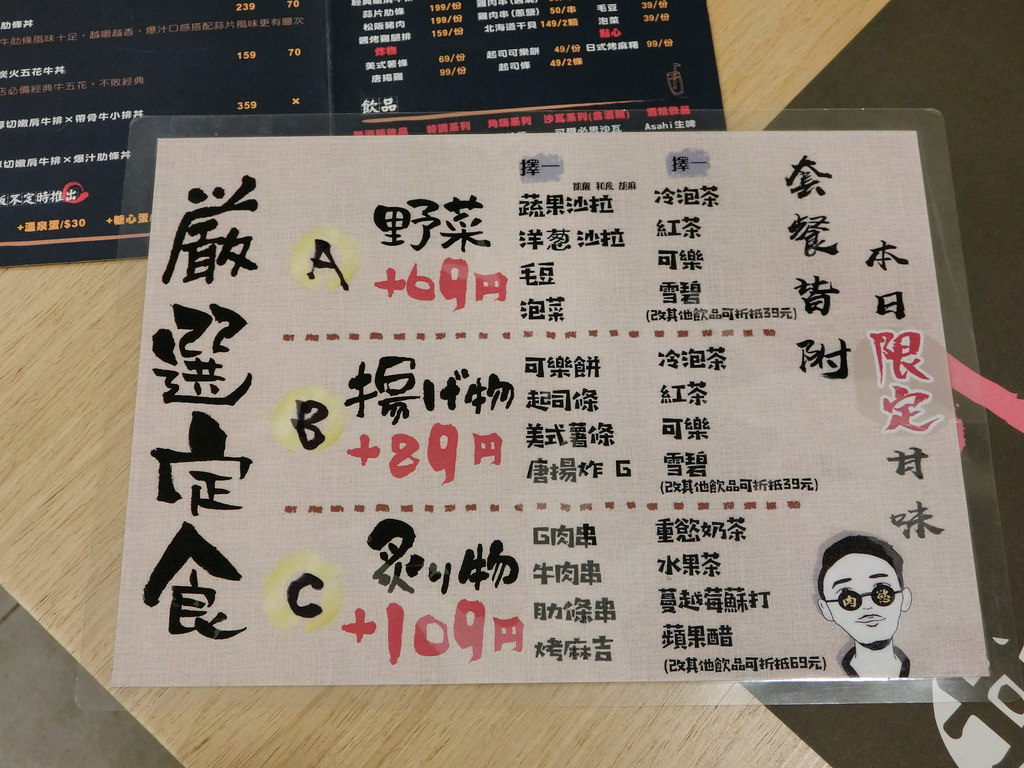 239 70
肋條丼
牛肋條風味十足，越嚼越香，爆汁口感搭配蒜片風味更有層次
159 70
炭火五花牛丼
店必備經典牛五花，不敗經典
359 ×
厚切嫩肩牛排×帶骨牛小排丼
厚切嫩肩牛排×爆汁肋條丼
不定時推出
+溫泉蛋/$30 +糖心蛋
199/份
蒜片肋條 199/份
松阪豬肉 159/份
醬烤雞腿排
炸物
美式薯條 69/份
唐揚雞 99/份
雞肉串(蔥鹽) 50/串
北海道干貝 149/2顆
起司可樂餅 49/份
起司條 49/2條
毛豆 39/份
泡菜 39/份
點心
日式烤麻糬 99/份
飲品
特調系列 角嗨系列 沙瓦系列(含酒精) 酒精飲品
可爾必思沙瓦 Asahi生啤
厳選定食
A
野菜
+69円
擇一
凱薩 和風 胡麻
蔬果沙拉
洋葱沙拉
毛豆
泡菜
擇一
冷泡茶
紅茶
可樂
雪碧
(改其他飲品可折抵39元)
B
揚げ物
+89円
可樂餅
起司條
美式薯條
唐揚炸 G
冷泡茶
紅茶
可樂
雪碧
(改其他飲品可折抵39元)
C
炙り物
+109円
G肉串
牛肉串
肋條串
烤麻吉
重慾奶茶
水果茶
蔓越莓蘇打
蘋果醋
(改其他飲品可折抵69元)
套餐皆附
本日限定甘味
肉 慾